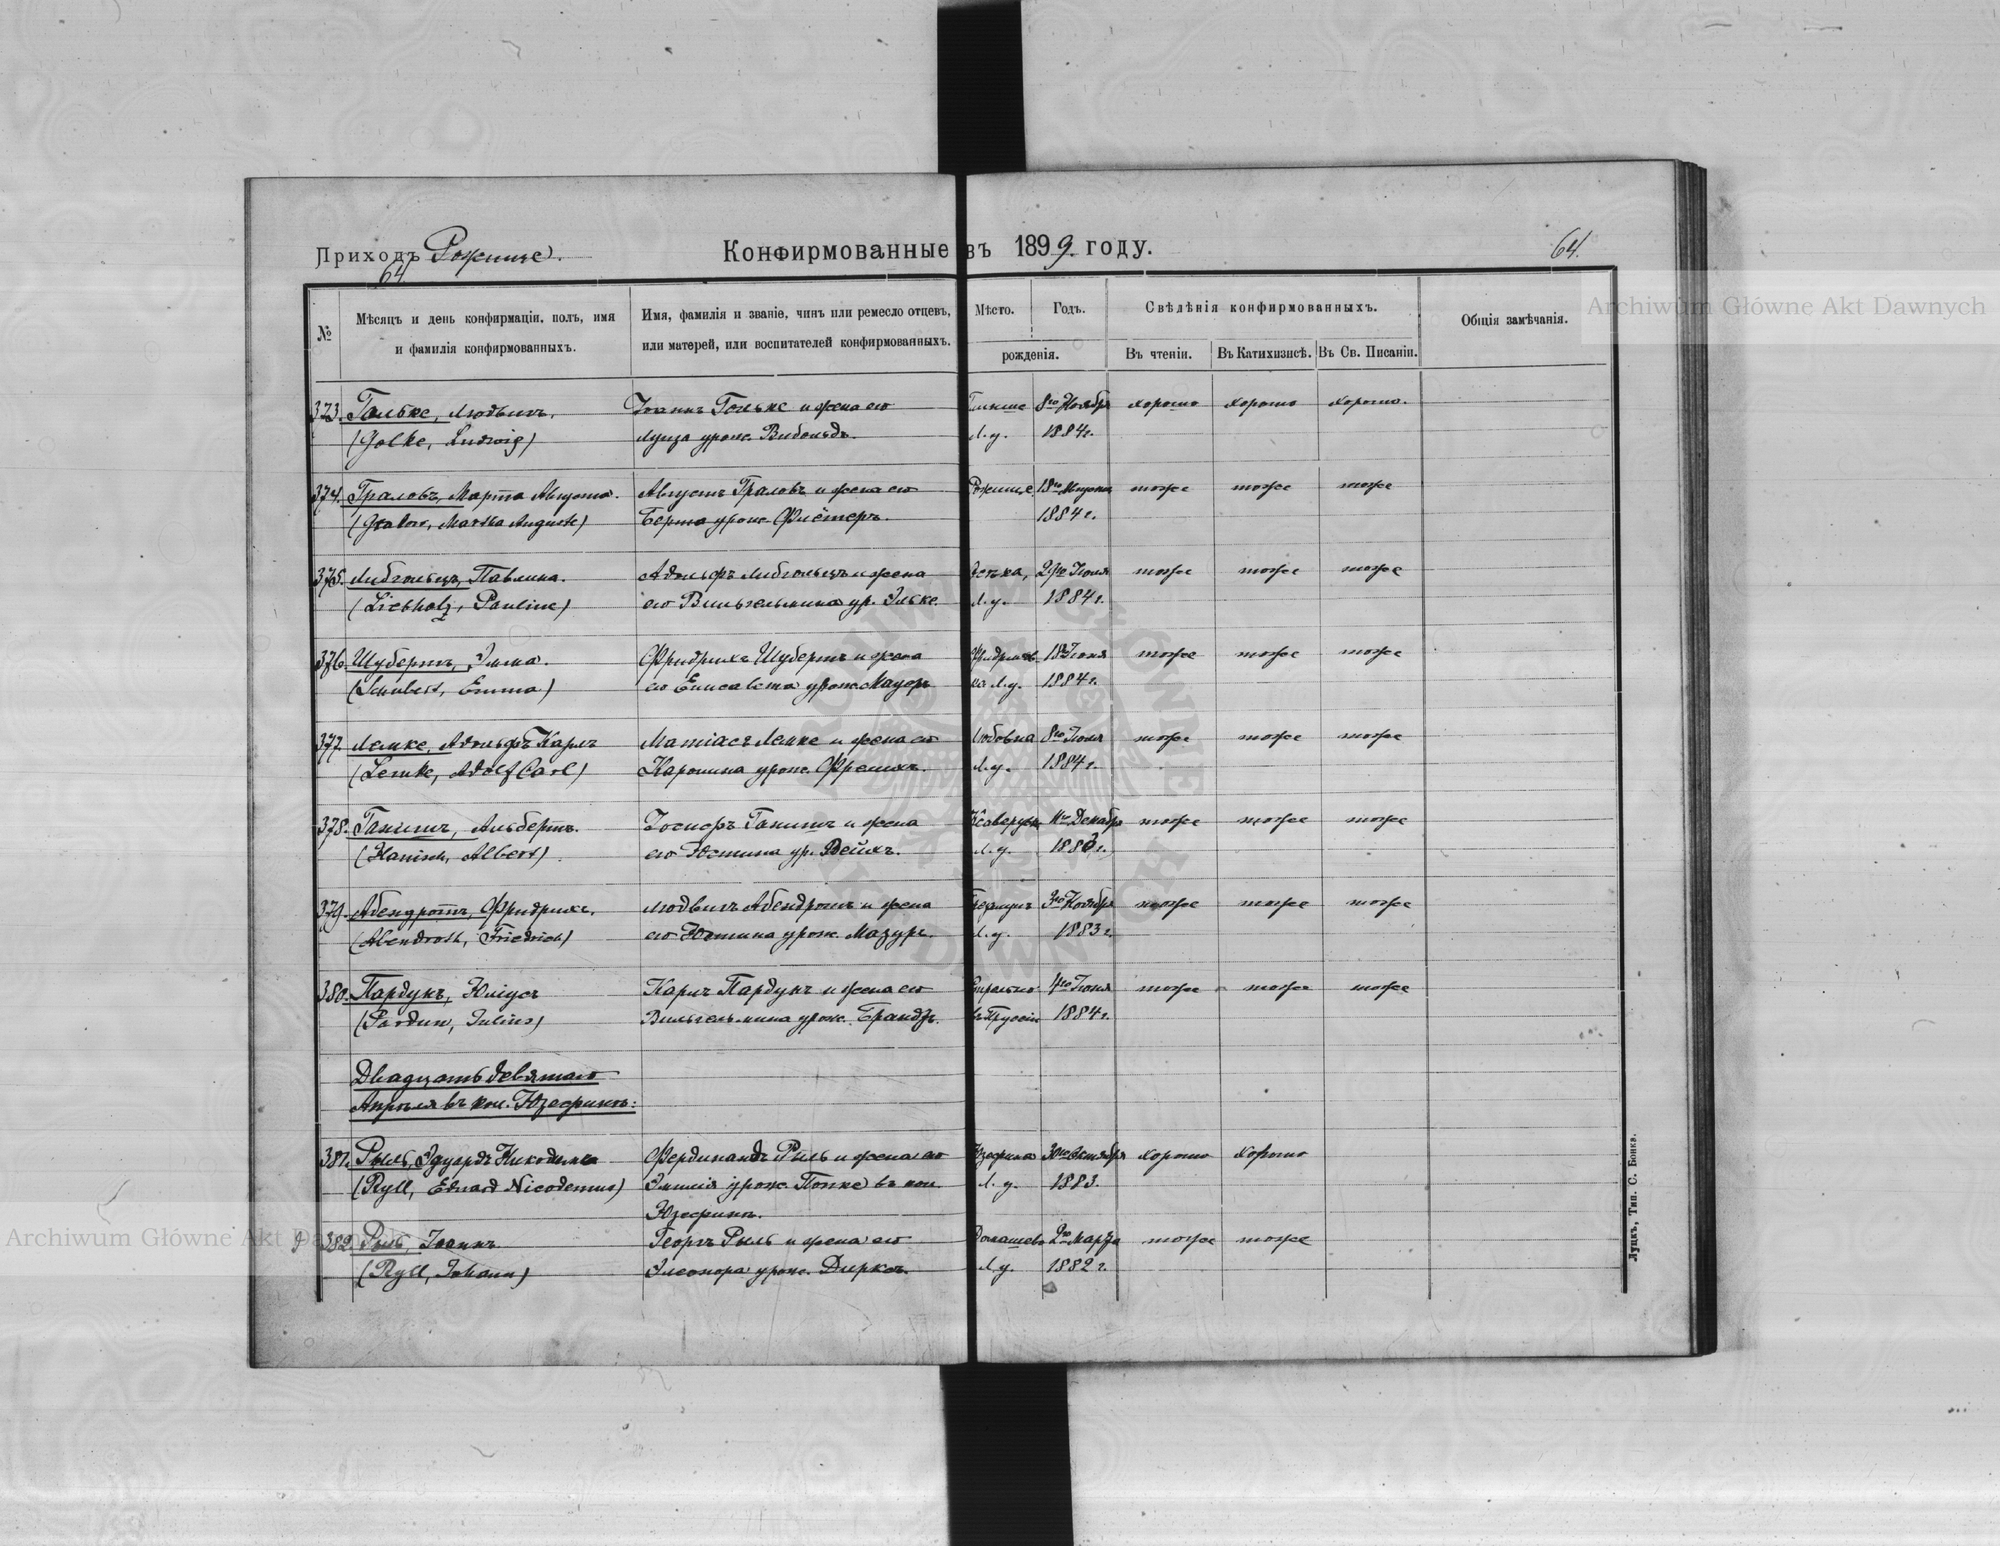 Приходъ Рожище.
Конфирмованные въ 1899 году.
64
64.
Archiwum Główne Akt Dawnych
№
Мѣсяцъ и день конфирмаціи, полъ, имя
и фамилія конфирмованныхъ.
Имя, фамилія и званіе, чинъ или ремесло отцевъ,
или матерей, или воспитателей конфирмованныхъ.
Мѣсто. Годъ.
рожденія.
Свѣдѣнія конфирмованныхъ.
Въ чтеніи. Въ Катихизисѣ. Въ Св. Писаніи.
Общія замѣчанія.
373. Гольке, Людвигъ. Іоаннъ Гольке и жена его 8го Ноября хорошо хорошо хорошо.
(Golke, Ludwig) Луиза урож. Л. у. 1884 г.
374. Граловъ, Марта Августа. Августъ Граловъ и жена его Рожище 18го тоже тоже тоже
(Gralow, Martha Auguste) Берта урож. Флётеръ. 1884 г.
375. Либгольцъ, Павлина. Адольфъ Либгольцъ и жена тоже тоже тоже
(Liebholz, Pauline) его Вильгельмина ур. Эльке. Л. у. 1884 г.
376. Шубертъ, Эмма. Фридрихъ Шубертъ и жена 18го Іюня тоже тоже тоже
(Schubert, Emma) его Елисавета урож. Мауеръ ка Л. у. 1884 г.
377. Лемке, Адольфъ Карлъ Матіасъ Лемке и жена его Любовка 8го Іюля тоже тоже тоже
(Lemke, Adolf Carl) Каролина урож. Л. у. 1884 г.
378. Ганишъ, Альбертъ. Іосифъ Ганишъ и жена Декабря тоже тоже тоже
(Hanisch, Albert) его Юстина ур. Вейхъ. Л. у. 1883 г.
379. Абендротъ, Фридрихъ. Людвигъ Абендротъ и жена 3го Ноября тоже тоже тоже
(Abendroth, Friedrich) его Юстина урож. Мазуръ. Л. у. 1883 г.
380. Пардунъ, Юліусъ Карлъ Пардунъ и жена его 4го Іюня тоже тоже тоже
(Pardun, Julius) Вильгельмина урож. Брандъ. въ Пруссіи 1884 г.
Двадцать девятаго
Апрѣля въ кол. Юзефинъ:
381. Рыль, Эдуардъ Никодимъ Фердинандъ Рыль и жена его Юзефинъ хорошо хорошо
(Ryll, Eduard Nicodemus) Эмилія урож. Попке въ кол. Л. у. 1883.
Юзефинъ.
382. Рыль, Іоаннъ Георгъ Рыль и жена его 2го Марта тоже тоже
(Ryll, Johann) Элеонора урож. Дирксъ. Л. у. 1882 г.
Луцкъ, Тип. С. Бонкъ.
Archiwum Główne Akt Dawnych
ARCHIWUM GŁÓWNE AKT DAWNYCH